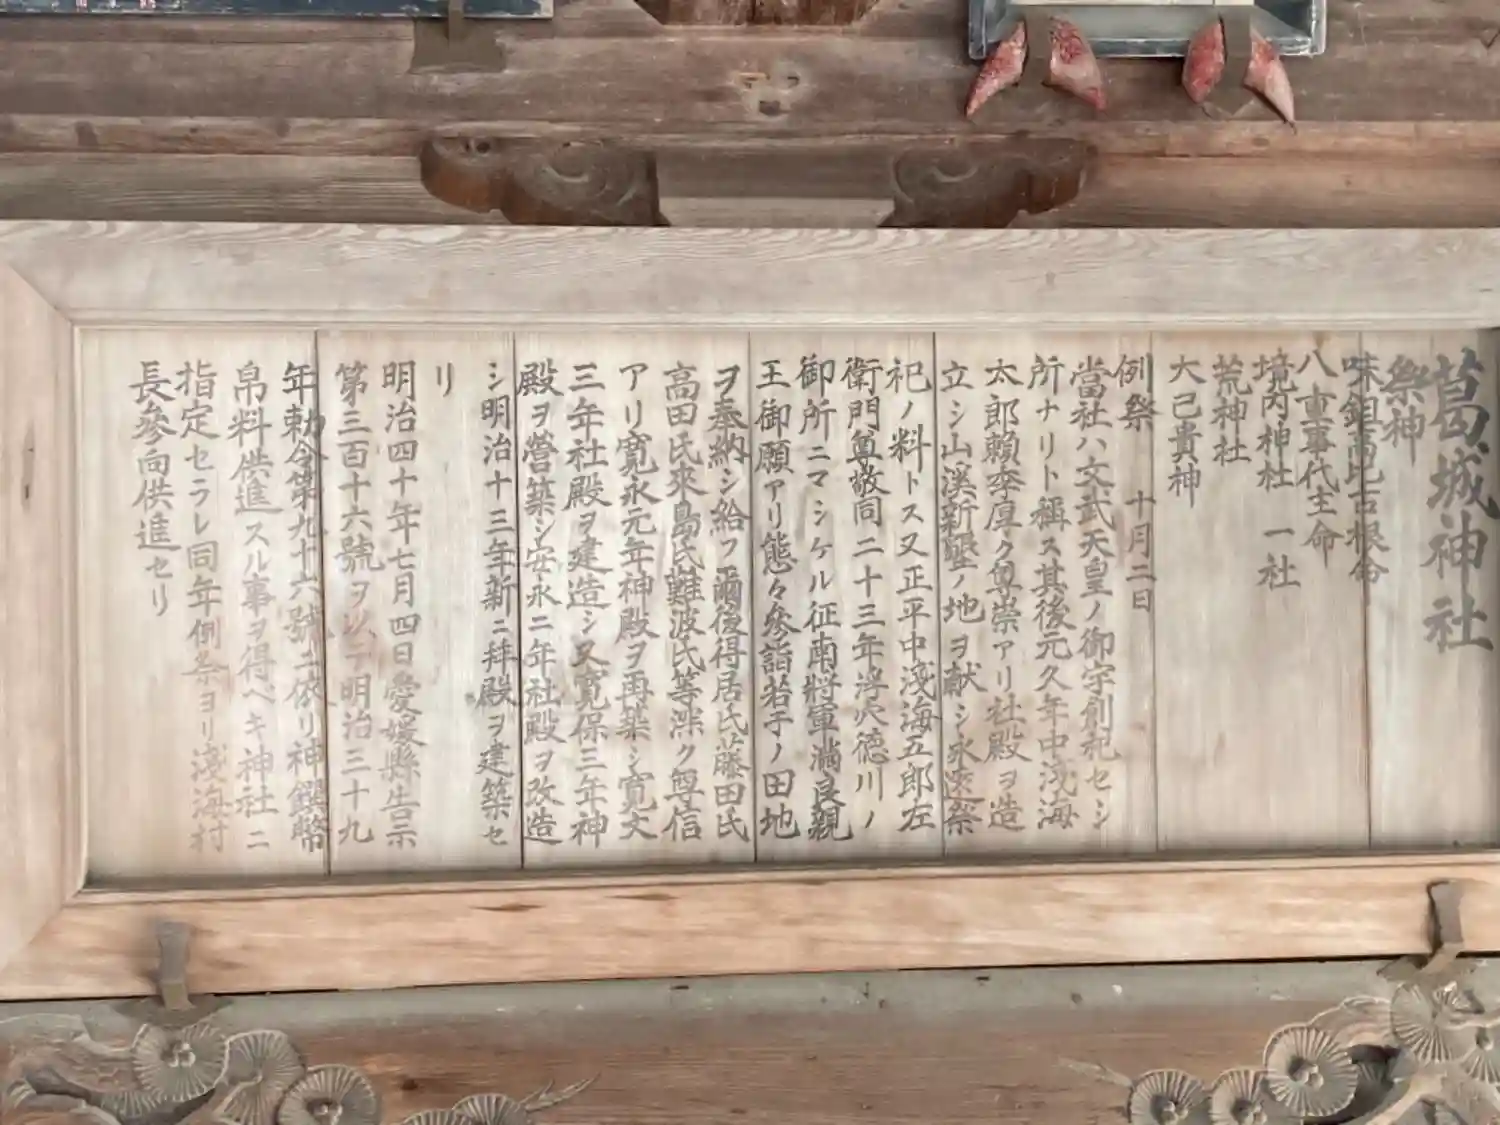 葛城神社
祭神
味鉏高比古根命
八重事代主命
境内神社 一社
荒神社
大己貴神
例祭 十月二日
當社ハ文武天皇ノ御宇創祀セシ
所ナリト稱ス其後元久年中浅海
太郎頼季厚ク尊崇アリ社殿ヲ造
立シ山溪新墾ノ地ヲ献シ永遠祭
祀ノ料トス又正平中淺海五郎左
衛門尊敬同二十三年浮穴徳川ノ
御所ニマシケル征南將軍滿良親
王御願アリ態々參詣若干ノ田地
ヲ奉納シ給フ爾後得居氏藤田氏
高田氏來島氏難波氏等深ク尊信
アリ寛永元年神殿ヲ再築シ寛文
三年社殿ヲ建造シ又寛保三年神
殿ヲ營築シ安永二年社殿ヲ改造
シ明治十三年新ニ拝殿ヲ建築セ
リ
明治四十年七月四日愛媛縣告示
第三百十六號ヲ以テ明治三十九
年勅令第九十六號ニ依リ神饌幣
帛料供進スル事ヲ得ベキ神社ニ
指定セラレ同年例祭ヨリ淺海村
長參向供進セリ